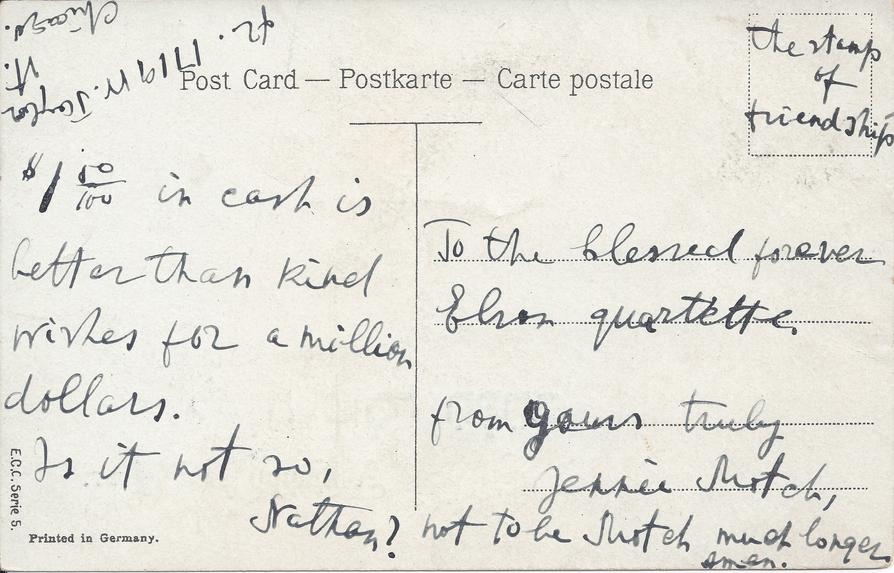 1719 W. Taylor
St.
Chicago.
Post Card — Postkarte — Carte postale
the stamp
of
friendship
$1 50/100 in cash is
better than kind
wishes for a million
dollars.
Is it not so,
Nathan?
To the blessed forever
Elson quartette.
from yours truly
Jennie Shotch,
not to be Shotch much longer
amen.
E.C.C. Serie 5.
Printed in Germany.